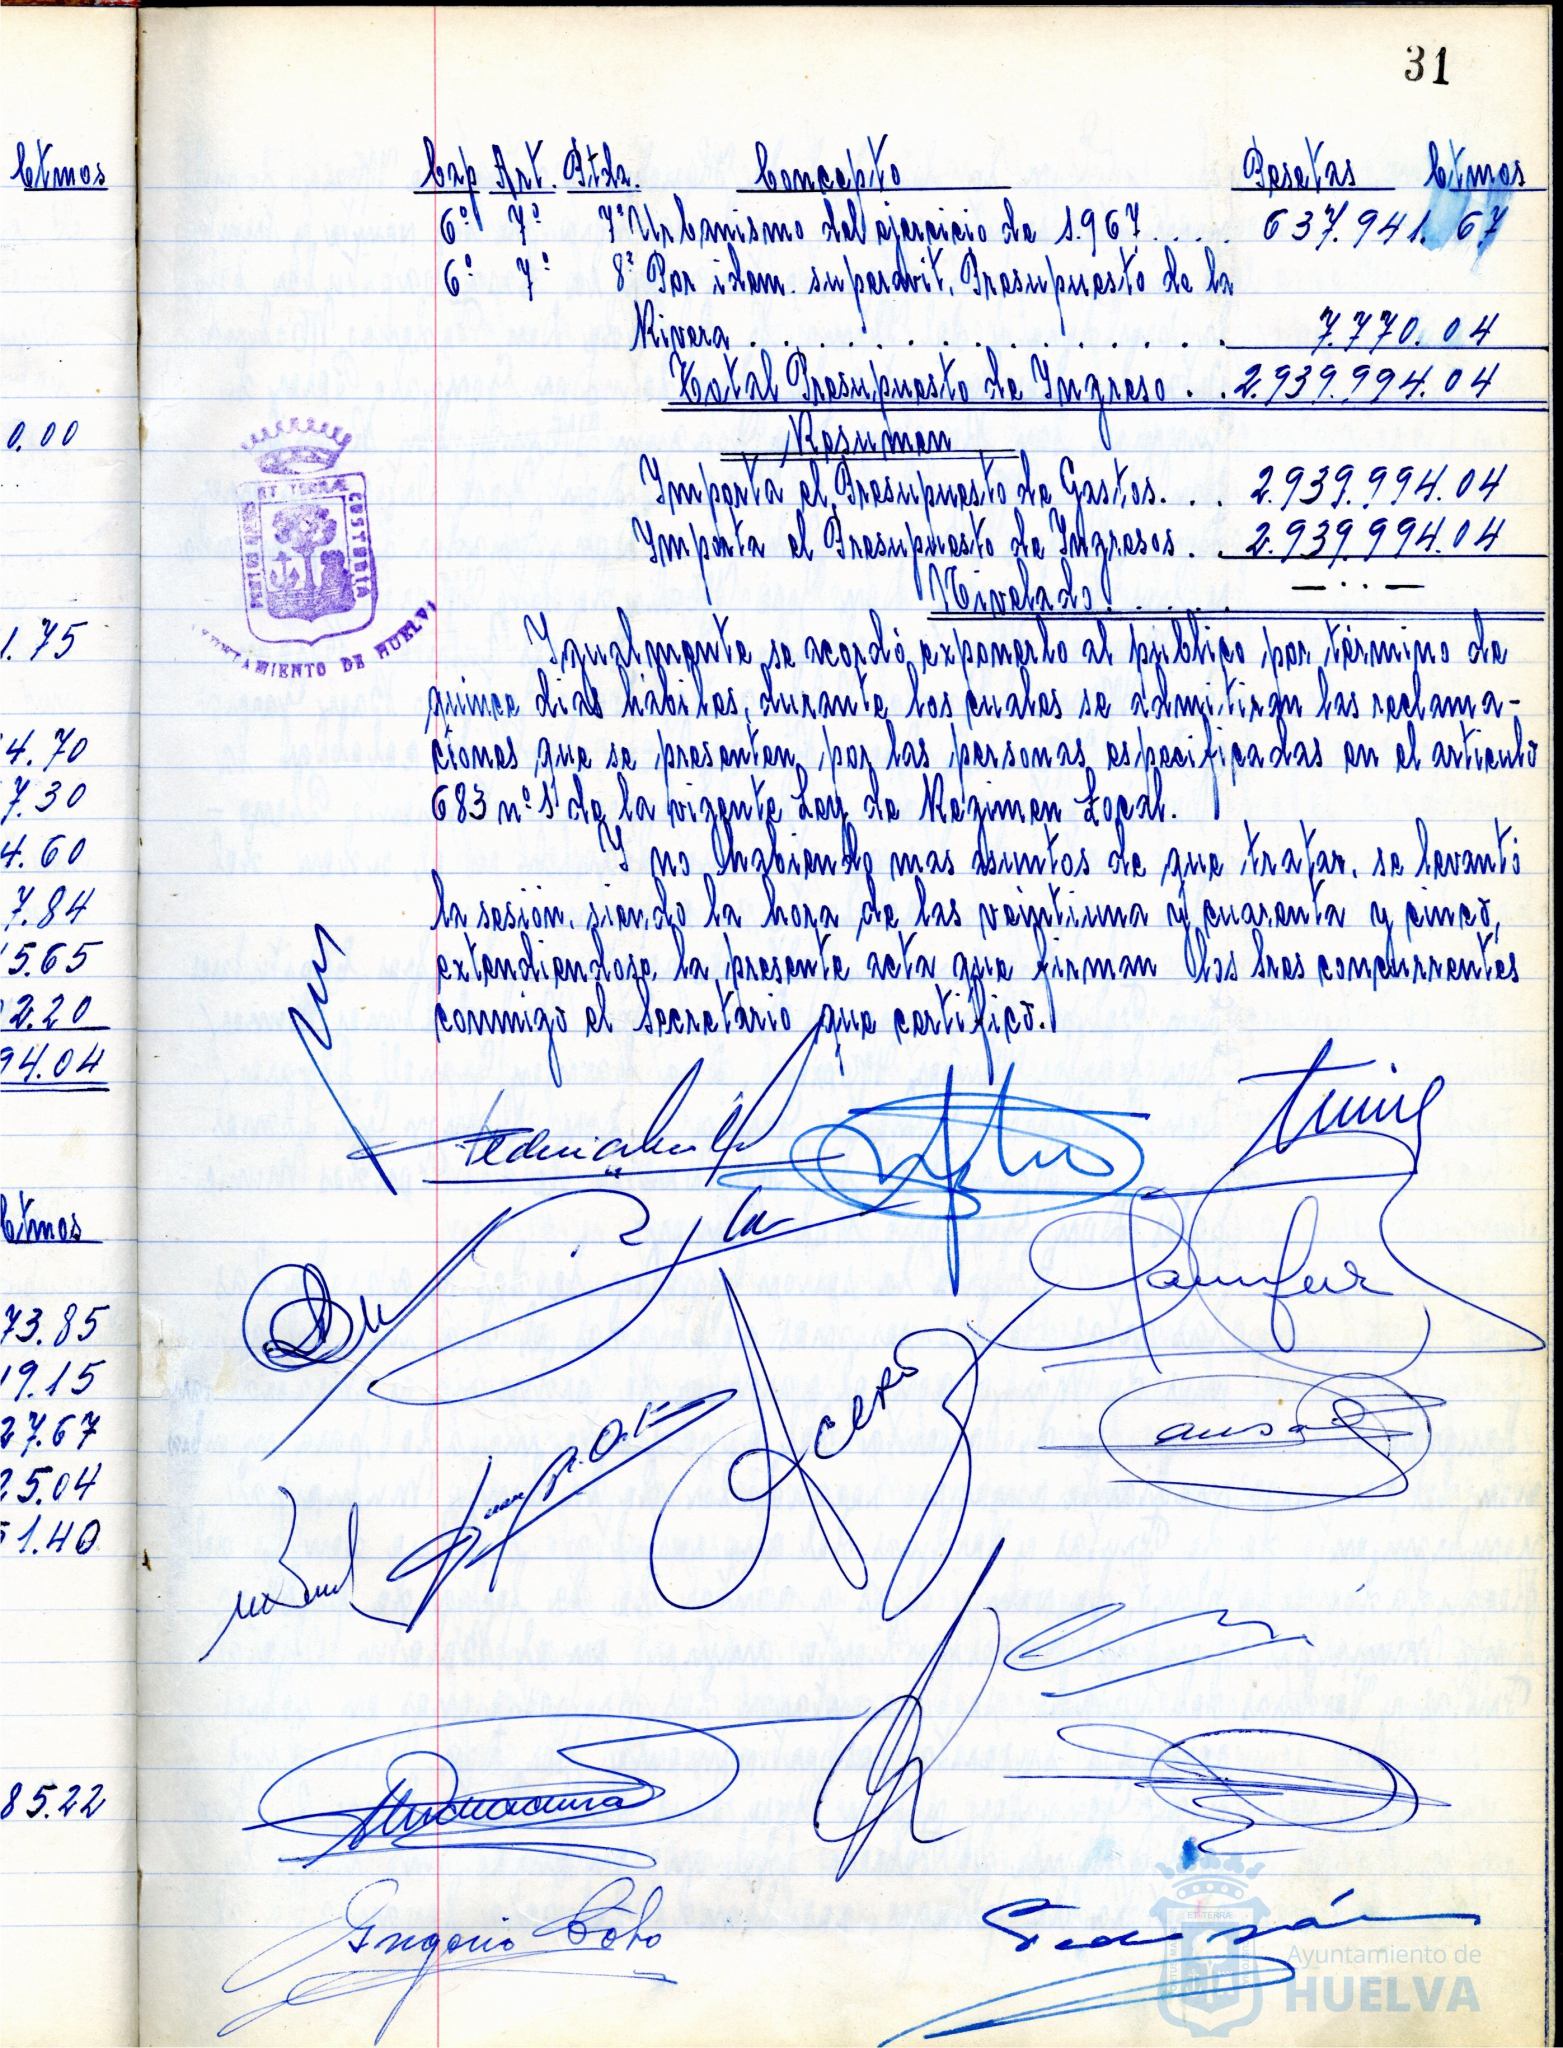 31
Ctmos
0.00
1.75
4.70
7.30
4.60
7.84
5.65
2.20
94.04
Ctmos
73.85
19.15
27.67
25.04
51.40
85.22
Cap Art. Ptda. Concepto Pesetas Ctmos
6º 7º 7º Urbanismo del ejercicio de 1.967 .... 637.941.67
6º 7º 8º Por idem. superavit, Presupuesto de la
Rivera . . . . . . . . . . . . . . . 7.770.04
Total Presupuesto de Ingreso . . 2.939.994.04
Resumen
Importa el Presupuesto de Gastos. . . 2.939.994.04
Importa el Presupuesto de Ingresos . . 2.939.994.04
Nivelado . . . . . — · · —
Igualmente se acordó exponerlo al público por término de
quince dias hábiles, durante los cuales se admitiran las reclama-
ciones que se presenten por las personas especificadas en el articulo
683 nº 1 de la vigente Ley de Regimen Local.
Y no habiendo mas asuntos de que tratar, se levantó
la sesión, siendo la hora de las veintiuna y cuarenta y cinco,
extendiendose la presente acta que firman los Sres concurrentes
conmigo el Secretario que certifico.
PORTUS MARIS ET TERRAE CUSTODIA
AYUNTAMIENTO DE HUELVA
Gregorio Coto
ET TERRAE
Ayuntamiento de
HUELVA